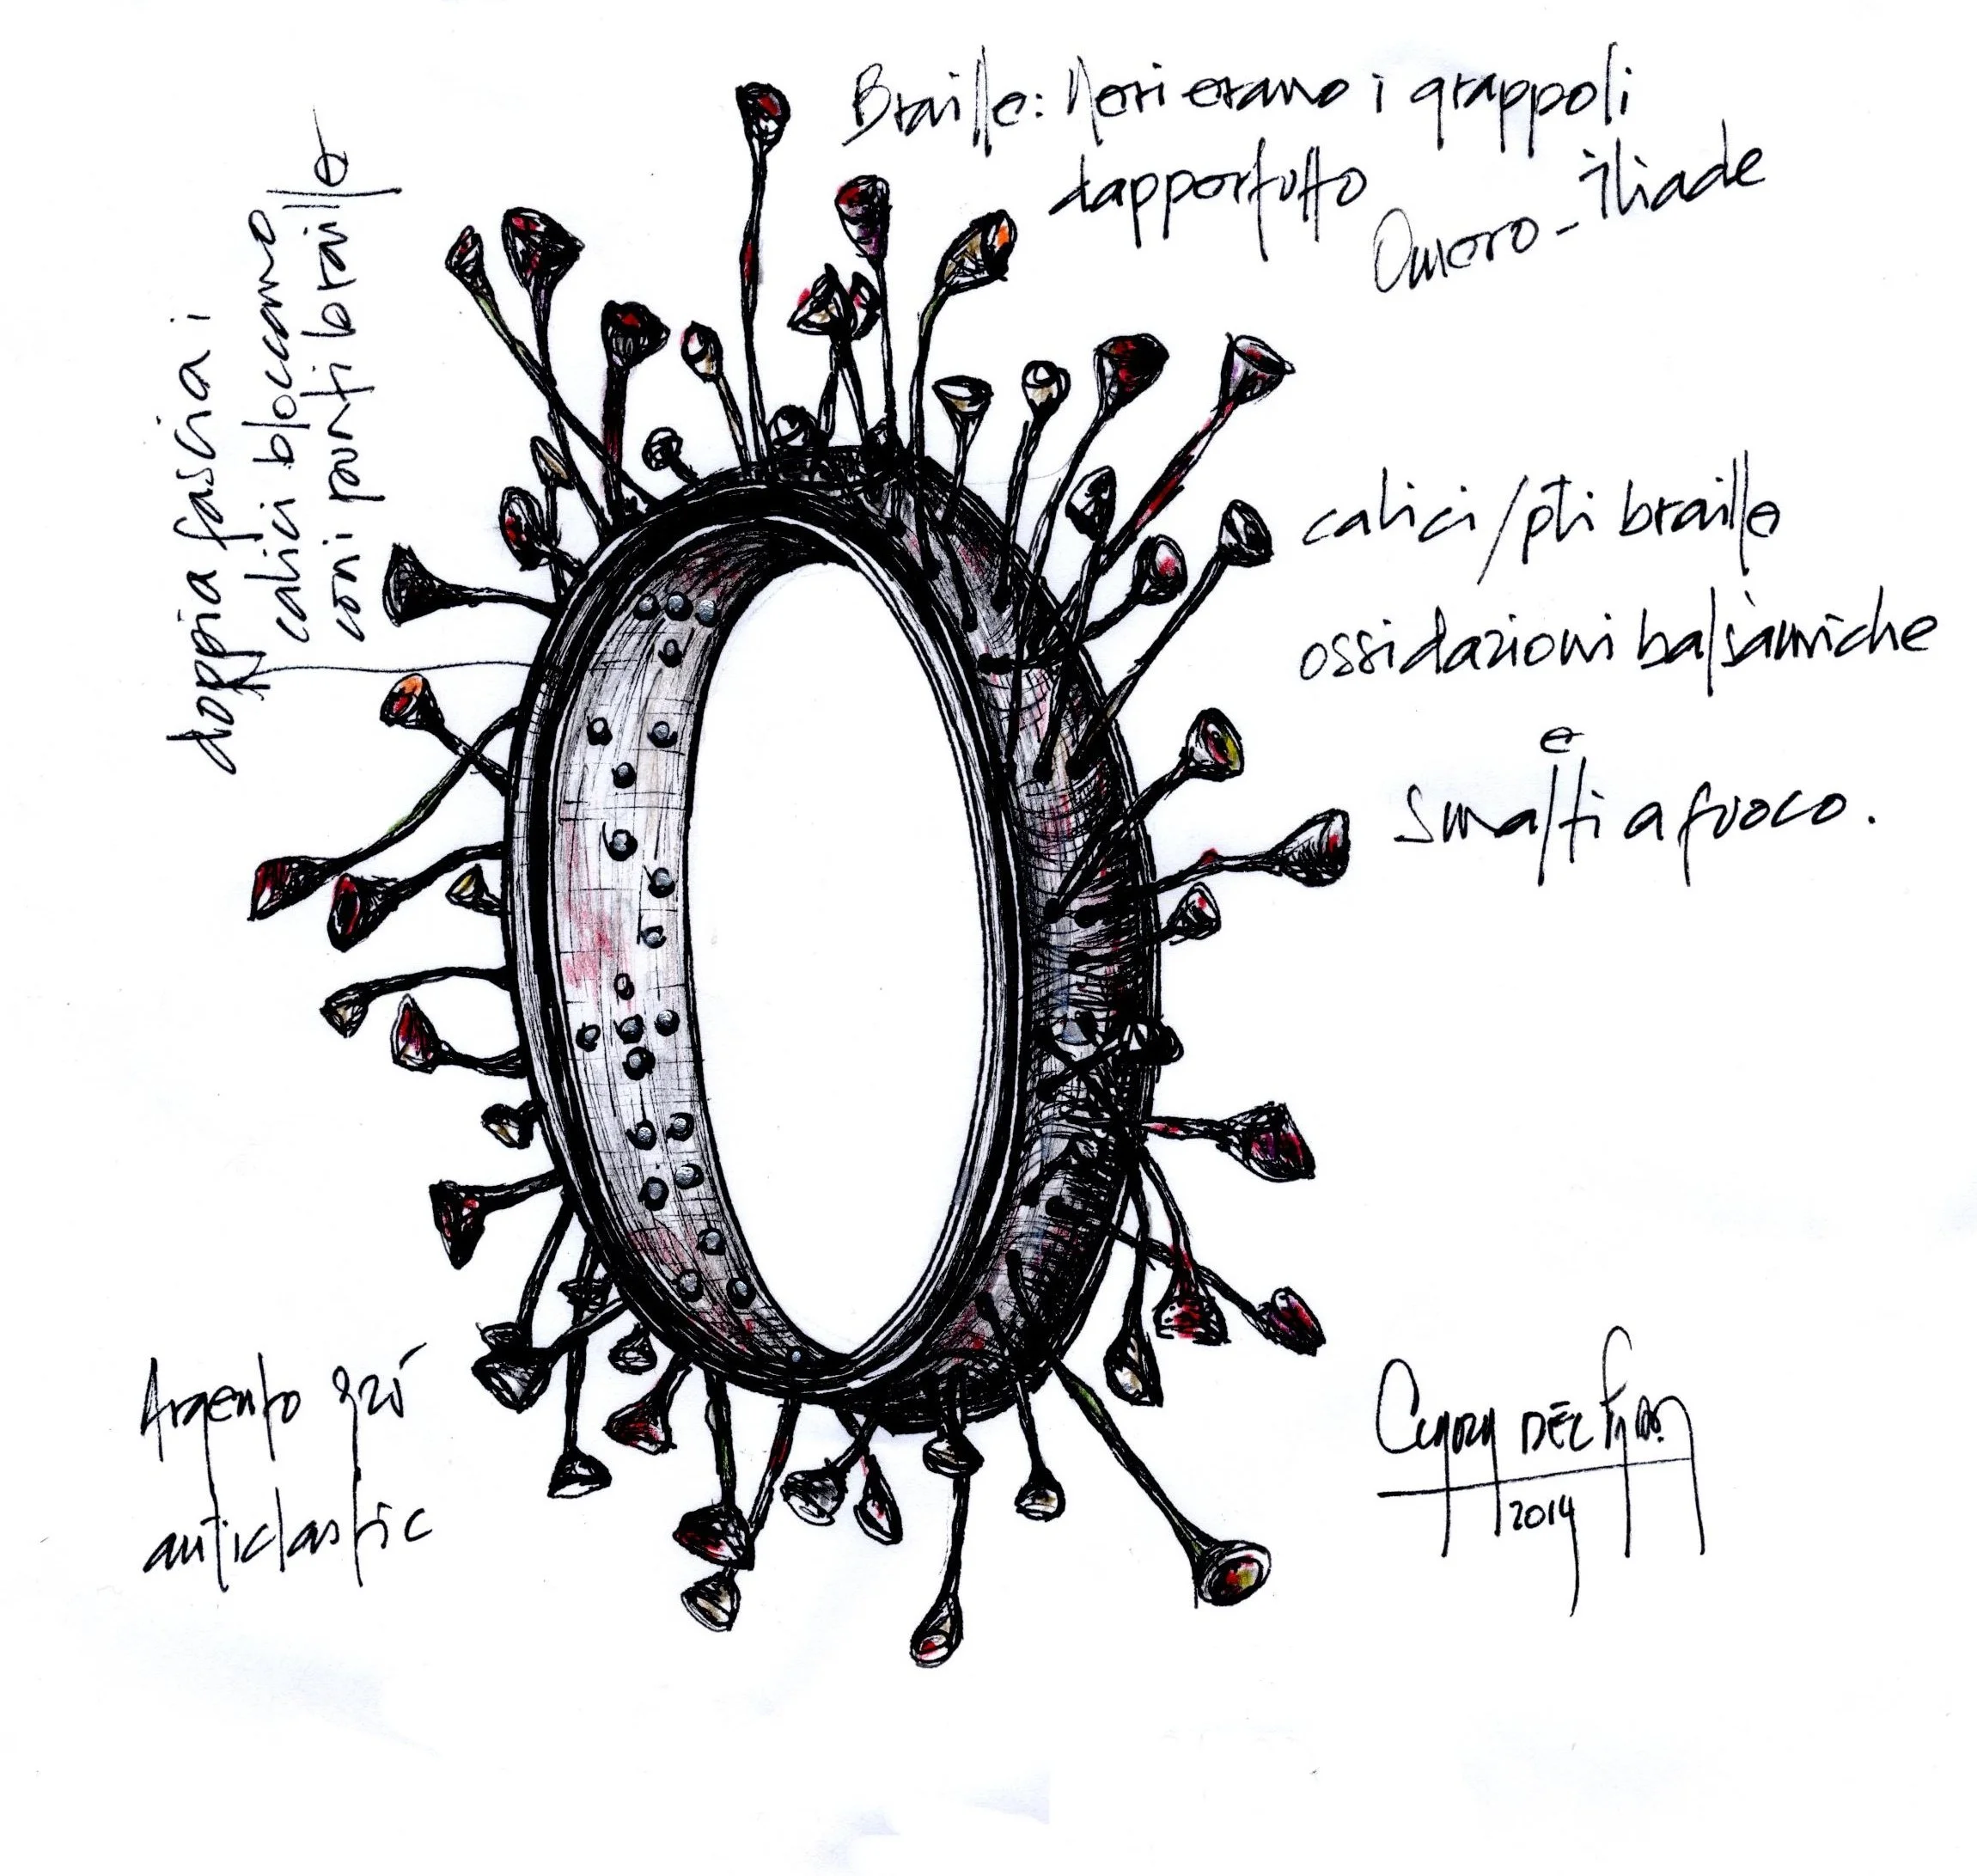 Braille: Neri erano i grappoli
dapportutto
Omero - Iliade
doppia fascia i
calici bloccano
coni punti braille
calici / pti braille
ossidazioni balsamiche
e
smalti a fuoco.
Argento 925
anticlastic
DEL
2014